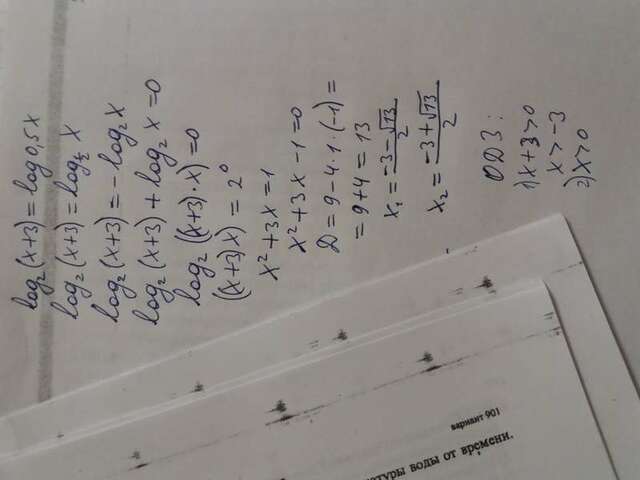 log₂(x+3) = log0,5x
log₂(x+3) = log½ x
log₂(x+3) = -log₂x
log₂(x+3) + log₂ x = 0
log₂((x+3)·x) = 0
((x+3)x) = 2⁰
x²+3x = 1
x²+3x-1 = 0
D = 9-4·1·(-1) =
= 9+4 = 13
x₁ = (-3-√13)/2
x₂ = (-3+√13)/2
ОДЗ:
1) x+3>0
x>-3
2) x>0
вариант 901
воды от времени.